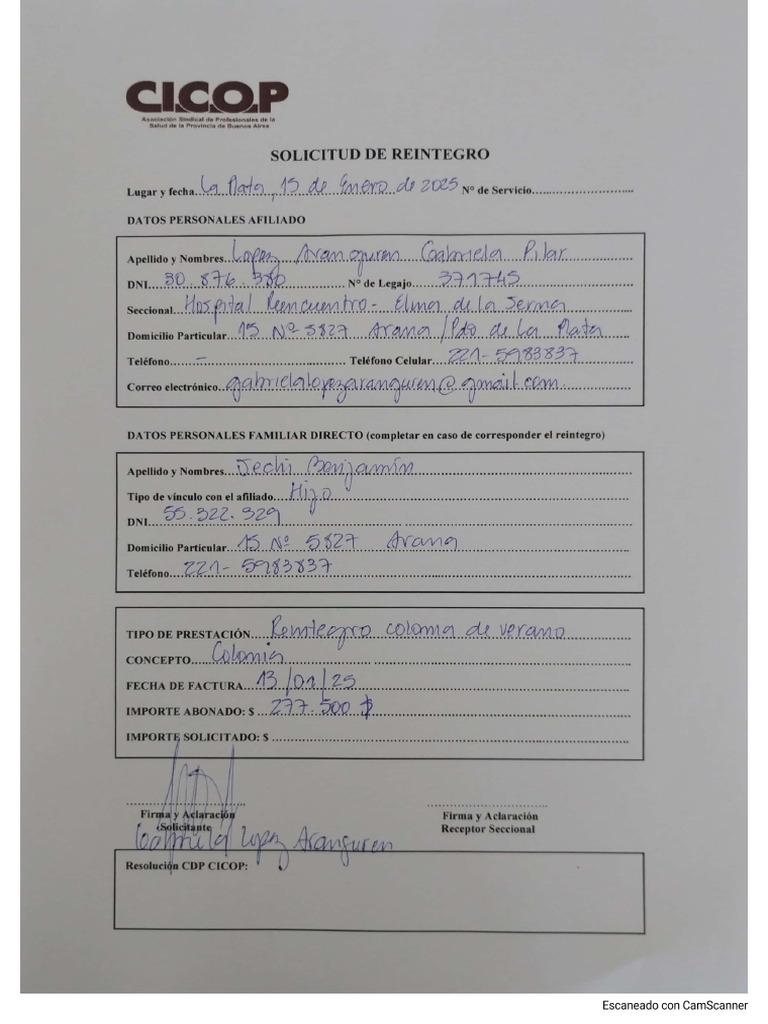 CICOP
Asociación Sindical de Profesionales de la
Salud de la Provincia de Buenos Aires
SOLICITUD DE REINTEGRO
Lugar y fecha La Plata, 15 de Enero de 2025 N° de Servicio
DATOS PERSONALES AFILIADO
Apellido y Nombres Lopez Aranguren Gabriela Pilar
DNI 30.876.380 N° de Legajo 371745
Seccional Hospital Reencuentro - Elina de la Serna
Domicilio Particular 15 Nº 5827 Arana / Pdo de La Plata
Teléfono - Teléfono Celular 221-5983837
Correo electrónico gabrielalopezaranguren@gmail.com
DATOS PERSONALES FAMILIAR DIRECTO (completar en caso de corresponder el reintegro)
Apellido y Nombres Jechi Benjamín
Tipo de vínculo con el afiliado Hijo
DNI 55.322.329
Domicilio Particular 15 Nº 5827 Arana
Teléfono 221-5983837
TIPO DE PRESTACIÓN Reintegro colonia de verano
CONCEPTO Colonia
FECHA DE FACTURA 13/01/25
IMPORTE ABONADO: $ 277.500 $
IMPORTE SOLICITADO: $
Firma y Aclaración
Solicitante
Firma y Aclaración
Receptor Seccional
Gabriela Lopez Aranguren
Resolución CDP CICOP:
Escaneado con CamScanner